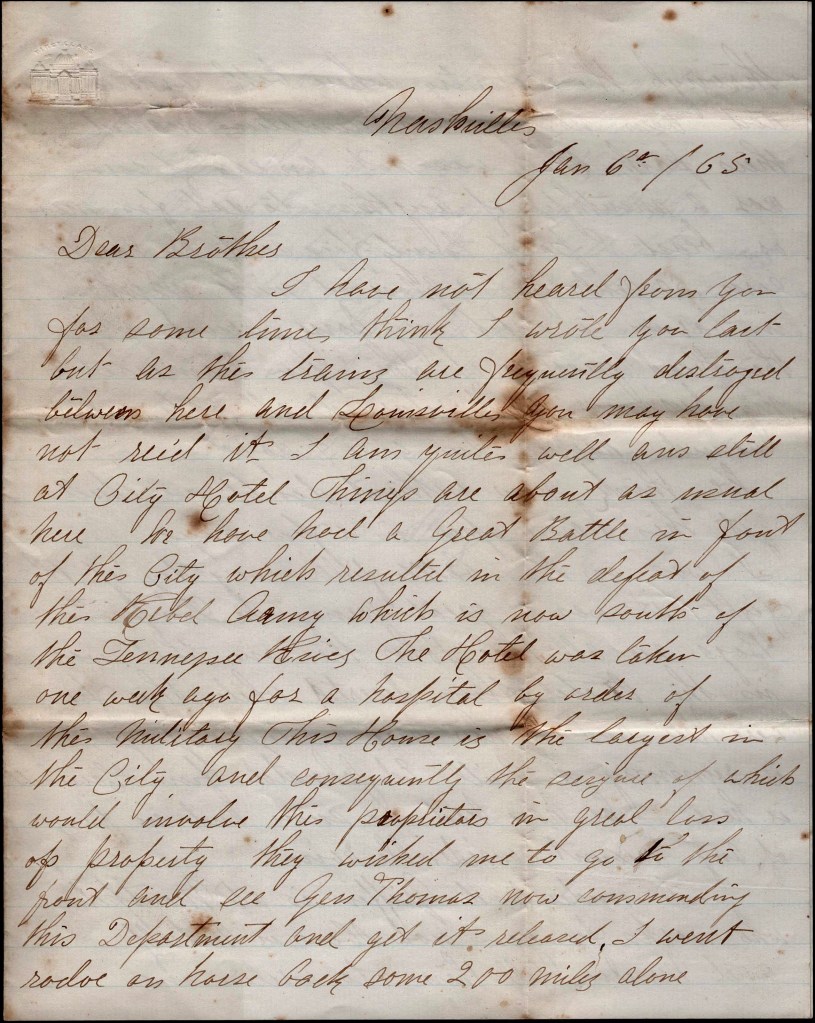 Nashville
Jan 6th / 65
Dear Brother
I have not heard from you
for some time think I wrote you last
but as the trains are frequently destroyed
between here and Louisville you may have
not rec'd it I am quite well am still
at City Hotel Things are about as usual
here We have had a Great Battle in font
of the City which resulted in the defeat of
the Rebel Army which is now south of
the Tennessee River The Hotel was taken
one week ago for a hospital by order of
the Military This House is the largest in
the City and consequently the seizure of which
would involve the proprietors in great loss
of property they wished me to go to the
front and see Gen Thomas now commanding
this Department and get it released, I went
rode on horse back some 200 miles alone